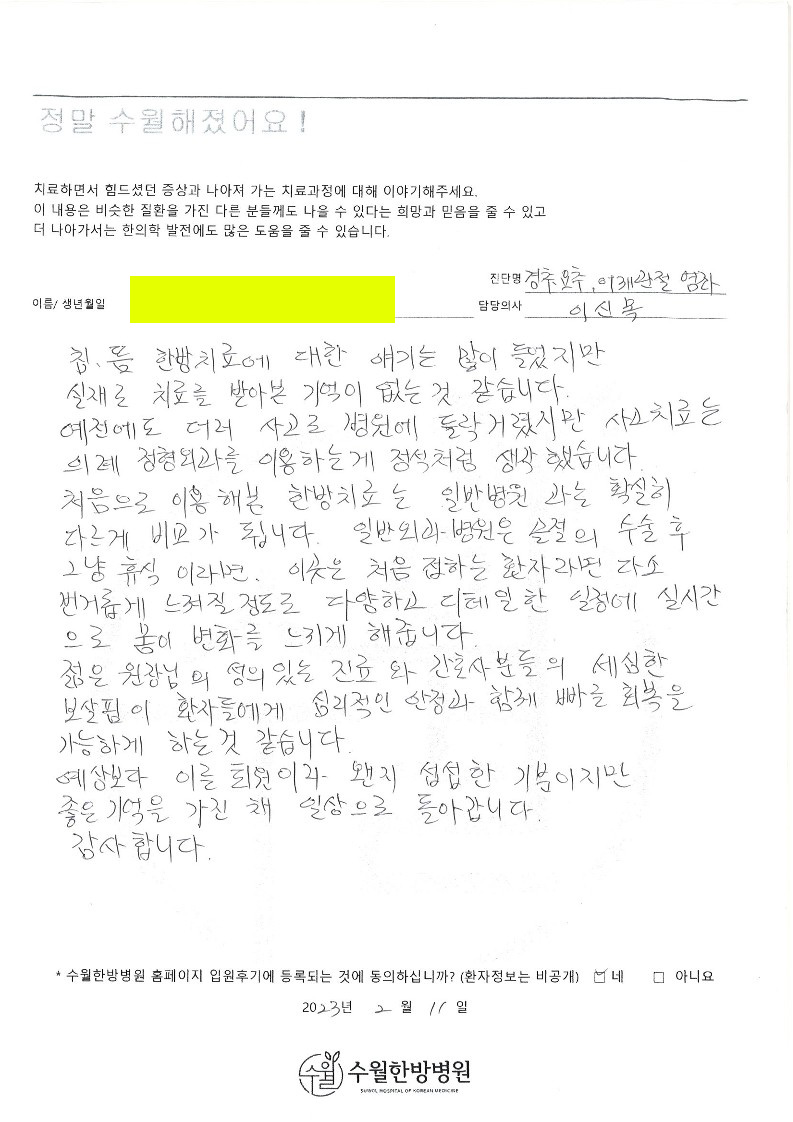 정말 수월해졌어요!
치료하면서 힘드셨던 증상과 나아져 가는 치료과정에 대해 이야기해주세요.
이 내용은 비슷한 질환을 가진 다른 분들께도 나을 수 있다는 희망과 믿음을 줄 수 있고
더 나아가서는 한의학 발전에도 많은 도움을 줄 수 있습니다.
진단명 경추요추, 어깨관절 염좌
이름/ 생년월일 담당의사 이신목
침, 뜸 한방치료에 대한 얘기는 많이 들었지만
실재로 치료를 받아본 기억이 없는것 같습니다.
예전에도 여러 사고로 병원에 들락거렸지만 사고치료는
의례 정형외과를 이용하는게 정석처럼 생각했습니다.
처음으로 이용해본 한방치료는 일반병원과는 확실히
다르게 비교가 됩니다. 일반외과병원은 골절의 수술 후
그냥 휴식 이라면, 이곳은 처음 접하는 환자라면 다소
번거롭게 느껴질정도로 다양하고 디테일한 일정에 실시간
으로 몸이 변화를 느끼게 해줍니다.
젊은 원장님의 성의있는 진료와 간호사분들의 세심한
보살핌이 환자들에게 심리적인 안정과 함께 빠른 회복을
가능하게 하는것 같습니다.
예상보다 이른 퇴원이라 왠지 섭섭한 기분이지만
좋은기억을 가진 채 일상으로 돌아갑니다.
감사합니다.
* 수월한방병원 홈페이지 입원후기에 등록되는 것에 동의하십니까? (환자정보는 비공개) ☑ 네 □ 아니요
2023년 2 월 11 일
수월 수월한방병원
SUWOL HOSPITAL OF KOREAN MEDICINE